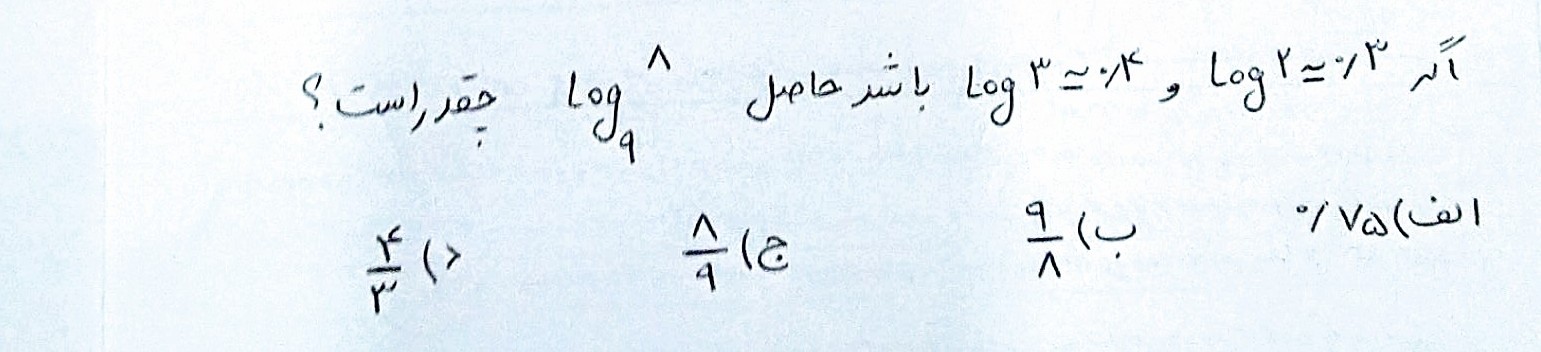 اگر Log ۲ ≃ ۰/۳ و Log ۳ ≃ ۰/۴ باشد حاصل Log₉ ۸ چقدر است؟
الف) ۰/۷۵ ب) ۹/۸ ج) ۸/۹ د) ۴/۳